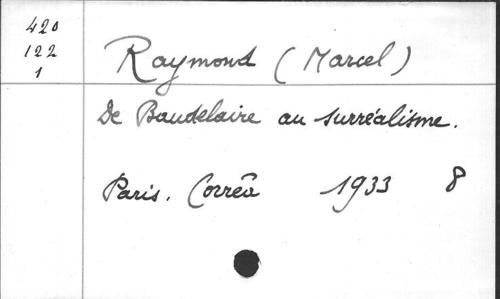 420
122
1
Raymond (Marcel)
De Baudelaire au surréalisme.
Paris. Corrêa 1933 8